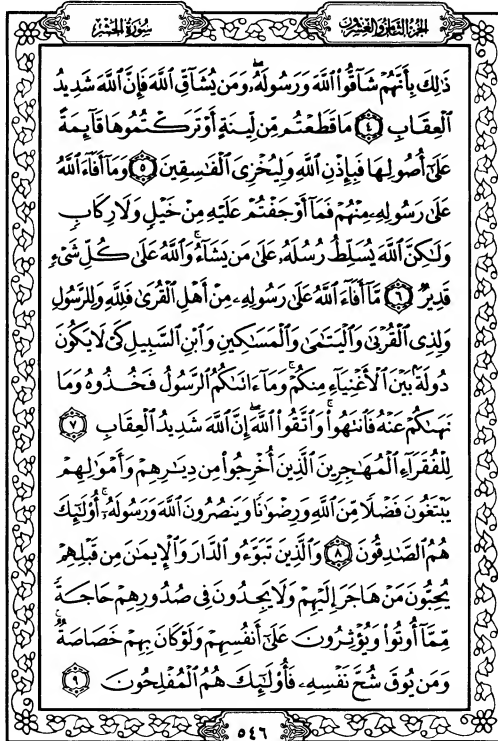 سُورَةُ الحَشْرِ
الجُزْءُ الثَّامِنُ وَالعِشْرُونَ
ذَٰلِكَ بِأَنَّهُمْ شَآقُّوا۟ ٱللَّهَ وَرَسُولَهُۥۖ وَمَن يُشَآقِّ ٱللَّهَ فَإِنَّ ٱللَّهَ شَدِيدُ
ٱلْعِقَابِ ٤ مَا قَطَعْتُم مِّن لِّينَةٍ أَوْ تَرَكْتُمُوهَا قَآئِمَةً
عَلَىٰٓ أُصُولِهَا فَبِإِذْنِ ٱللَّهِ وَلِيُخْزِىَ ٱلْفَـٰسِقِينَ ٥ وَمَآ أَفَآءَ ٱللَّهُ
عَلَىٰ رَسُولِهِۦ مِنْهُمْ فَمَآ أَوْجَفْتُمْ عَلَيْهِ مِنْ خَيْلٍ وَلَا رِكَابٍ
وَلَـٰكِنَّ ٱللَّهَ يُسَلِّطُ رُسُلَهُۥ عَلَىٰ مَن يَشَآءُۚ وَٱللَّهُ عَلَىٰ كُلِّ شَىْءٍ
قَدِيرٌ ٦ مَّآ أَفَآءَ ٱللَّهُ عَلَىٰ رَسُولِهِۦ مِنْ أَهْلِ ٱلْقُرَىٰ فَلِلَّهِ وَلِلرَّسُولِ
وَلِذِى ٱلْقُرْبَىٰ وَٱلْيَتَـٰمَىٰ وَٱلْمَسَـٰكِينِ وَٱبْنِ ٱلسَّبِيلِ كَىْ لَا يَكُونَ
دُولَةًۢ بَيْنَ ٱلْأَغْنِيَآءِ مِنكُمْۚ وَمَآ ءَاتَىٰكُمُ ٱلرَّسُولُ فَخُذُوهُ وَمَا
نَهَىٰكُمْ عَنْهُ فَٱنتَهُوا۟ۚ وَٱتَّقُوا۟ ٱللَّهَۖ إِنَّ ٱللَّهَ شَدِيدُ ٱلْعِقَابِ ٧
لِلْفُقَرَآءِ ٱلْمُهَـٰجِرِينَ ٱلَّذِينَ أُخْرِجُوا۟ مِن دِيَـٰرِهِمْ وَأَمْوَٰلِهِمْ
يَبْتَغُونَ فَضْلًا مِّنَ ٱللَّهِ وَرِضْوَٰنًا وَيَنصُرُونَ ٱللَّهَ وَرَسُولَهُۥٓۚ أُو۟لَـٰٓئِكَ
هُمُ ٱلصَّـٰدِقُونَ ٨ وَٱلَّذِينَ تَبَوَّءُو ٱلدَّارَ وَٱلْإِيمَـٰنَ مِن قَبْلِهِمْ
يُحِبُّونَ مَنْ هَاجَرَ إِلَيْهِمْ وَلَا يَجِدُونَ فِى صُدُورِهِمْ حَاجَةً
مِّمَّآ أُوتُوا۟ وَيُؤْثِرُونَ عَلَىٰٓ أَنفُسِهِمْ وَلَوْ كَانَ بِهِمْ خَصَاصَةٌۚ
وَمَن يُوقَ شُحَّ نَفْسِهِۦ فَأُو۟لَـٰٓئِكَ هُمُ ٱلْمُفْلِحُونَ ٩
٥٤٦